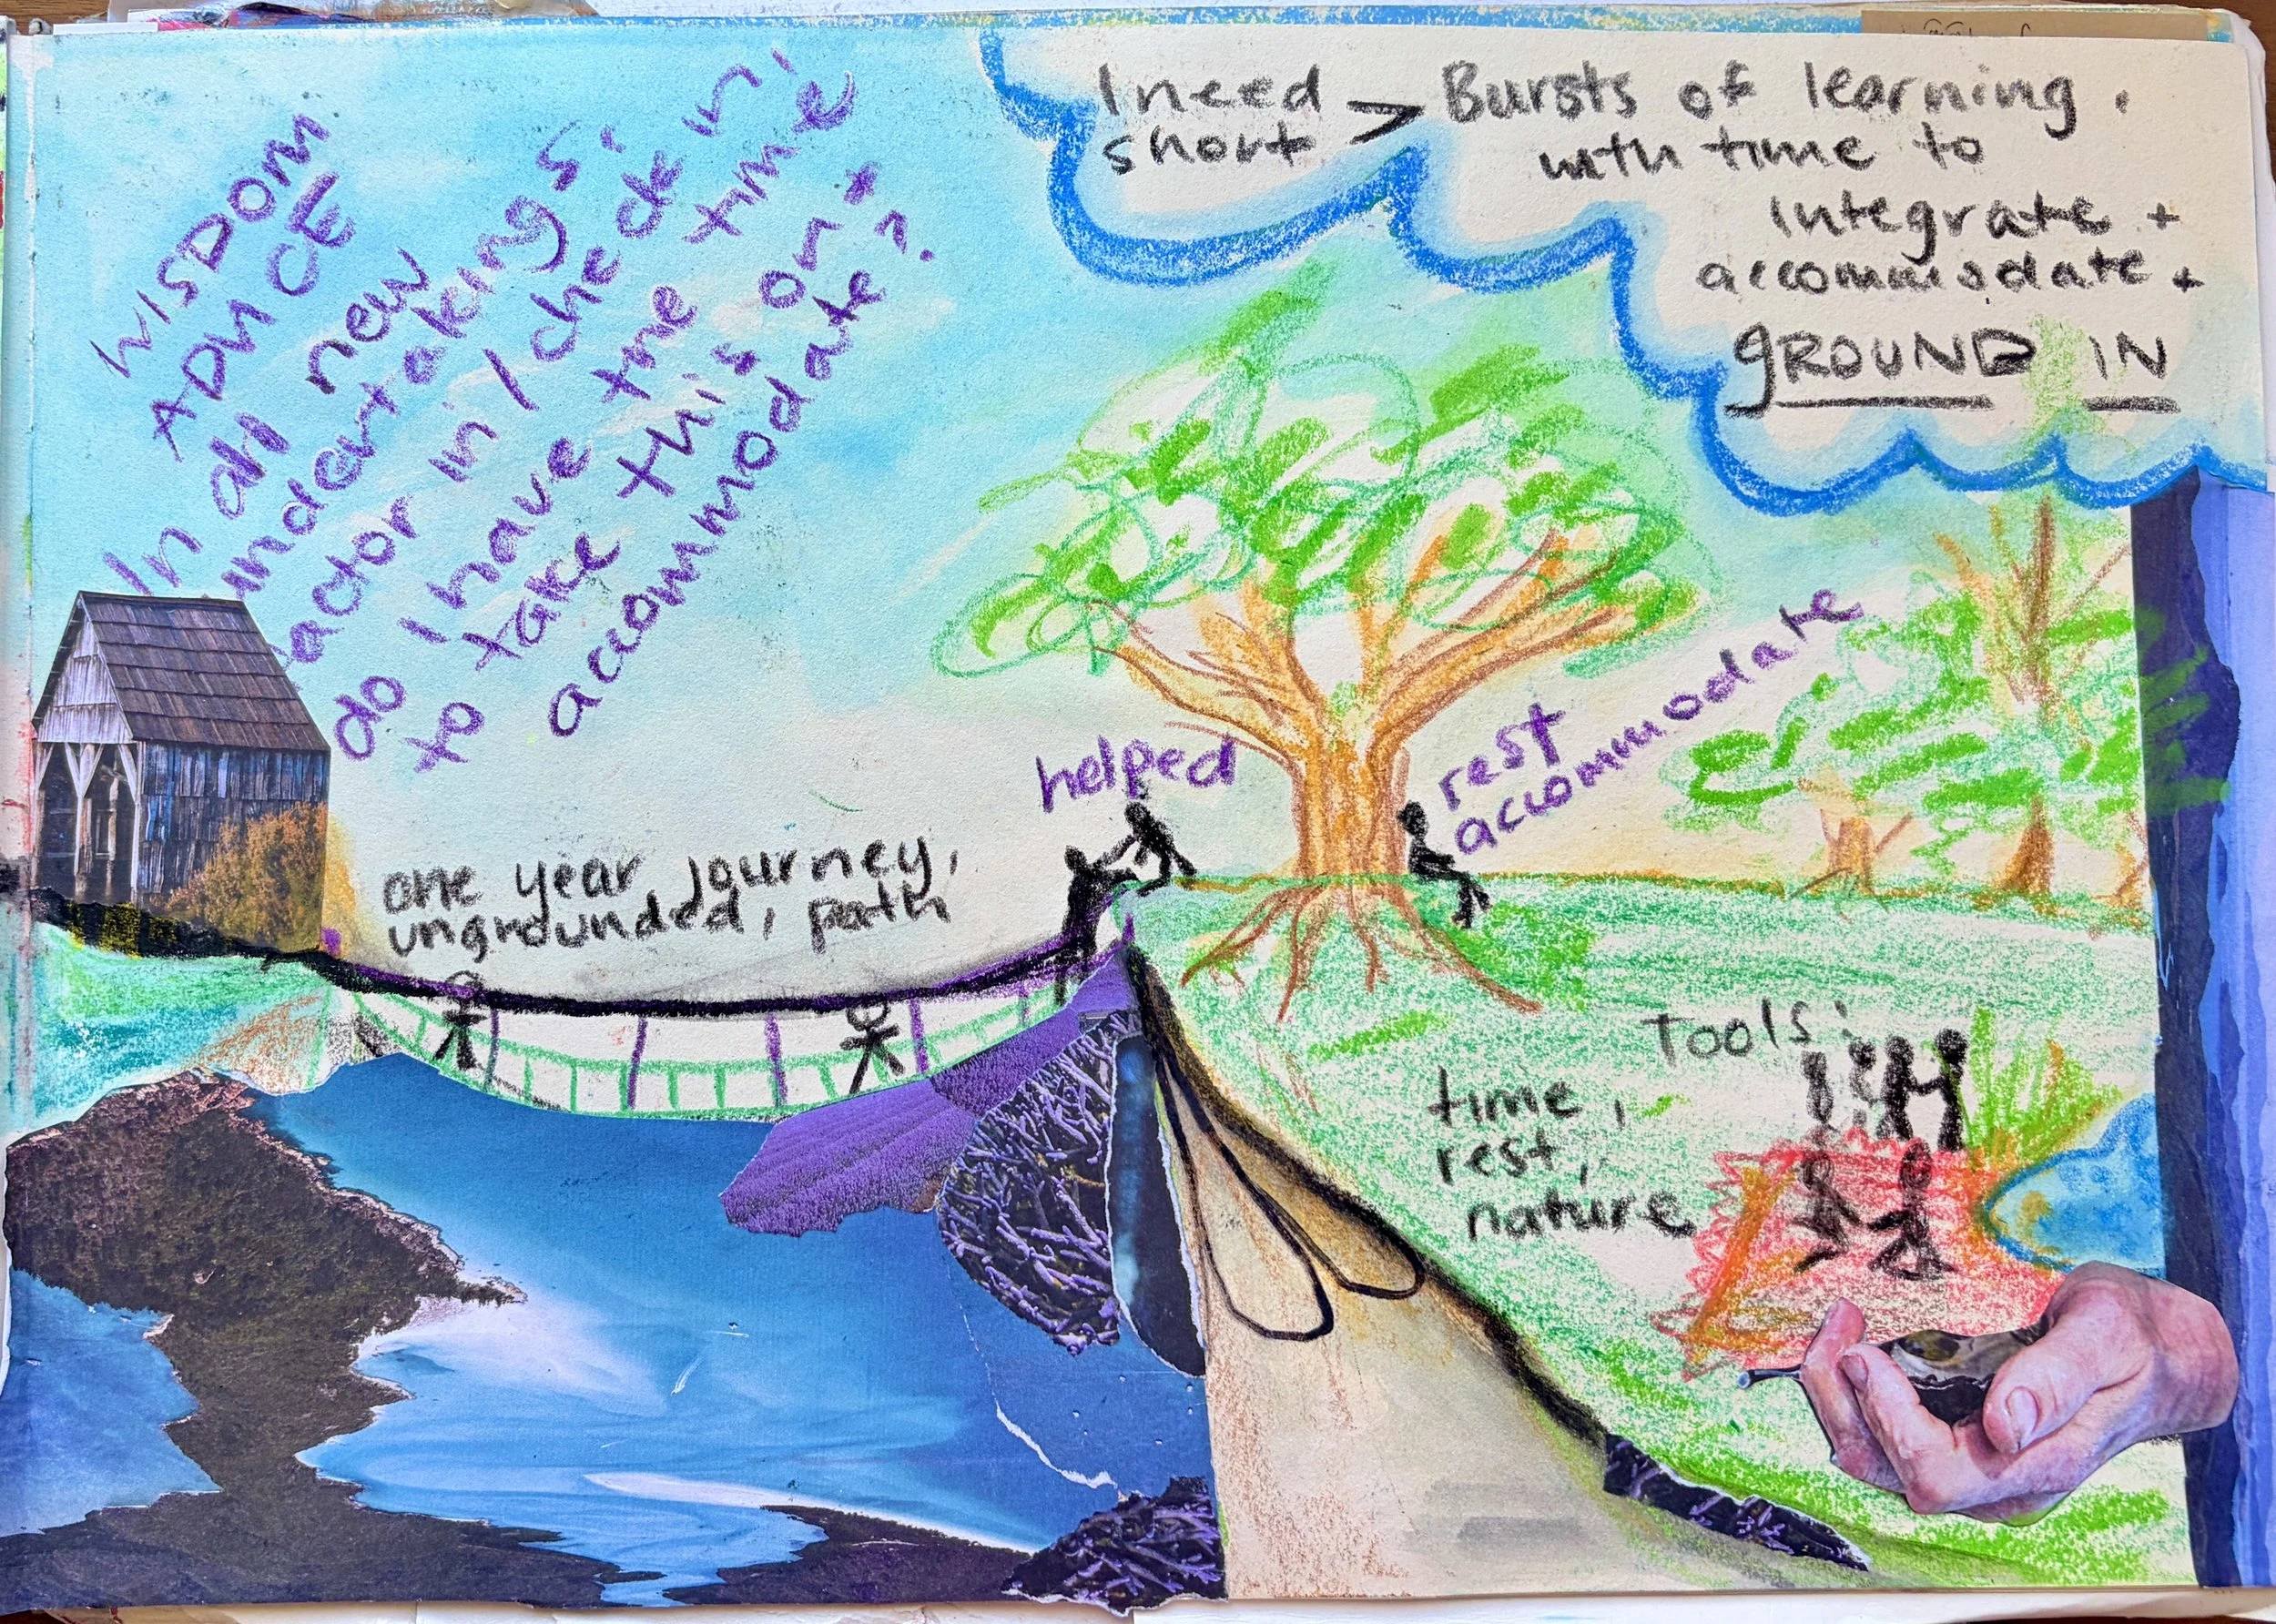 WISDOM
ADVICE
In all new
undertakings'
factor in / check in'
do I have the time
to take this on +
accommodate?
I need
short > Bursts of learning,
with time to
integrate +
accommodate +
gROUND IN
helped
rest
accommodate
one year journey,
ungrounded, path
Tools:
time,
rest,
nature